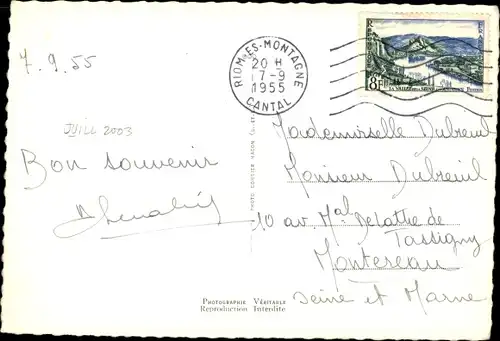 7.9.55
JUILL 2003
Bon souvenir
RIOM-ES-MONTAGNE
20 H
7-9
1955
CANTAL
8F
LA VALLEE DE LA SEINE
Mademoiselle Dubreuil
Monsieur Dubreuil
10 av. Mal Delattre de
Tassigny
Montereau
Seine et Marne
PHOTOGRAPHIE VÉRITABLE
Reproduction Interdite
PHOTO COMBIER MACON